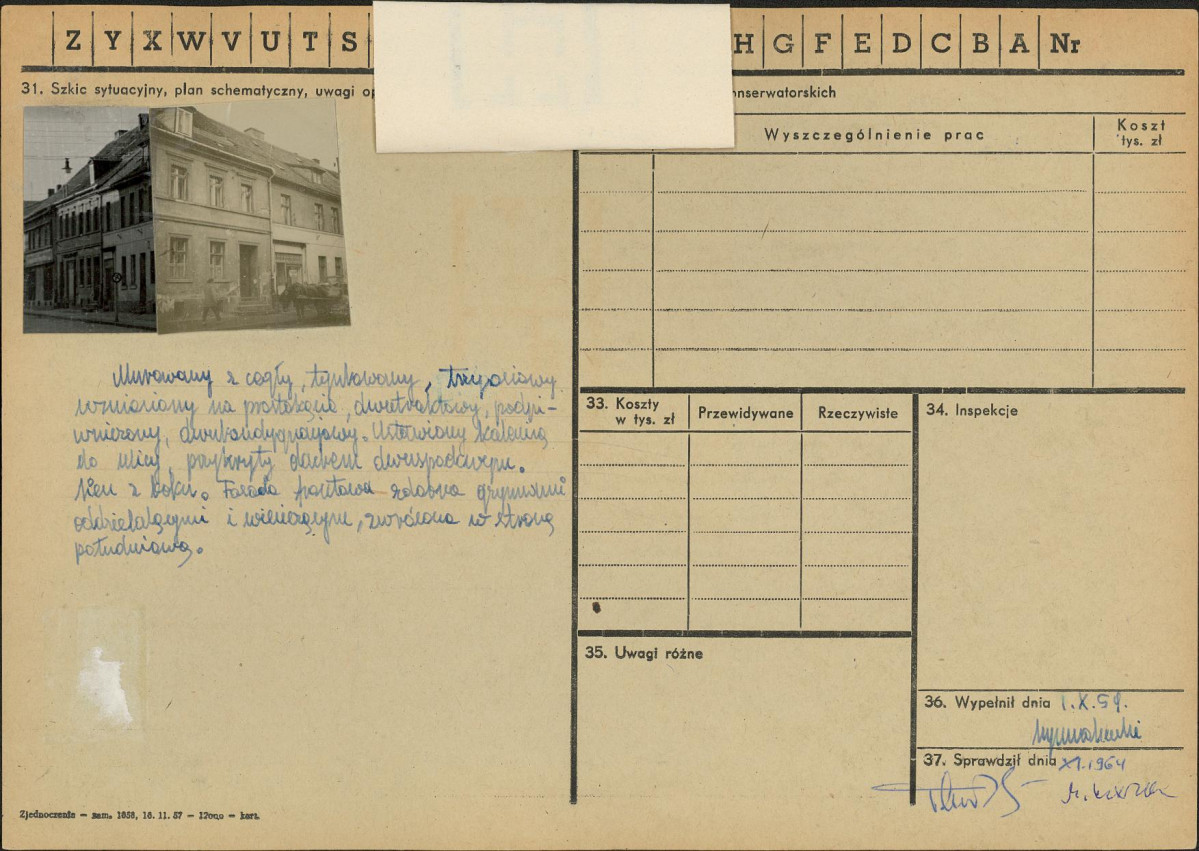 Z Y X W V U T S H G F E D C B A Nr
31. Szkic sytuacyjny, plan schematyczny, uwagi op
onserwatorskich
Wyszczególnienie prac
Koszt
tys. zł
Murowany z cegły, tynkowany, trzyosiowy
wzniesiony na prostokącie, dwutraktowy, podpi-
wniczony, dwukondygnacyjowy. Ustawiony kalenicą
do ulicy, przykryty dachem dwuspadowym.
Sień z boku. Fasada prosta ozdobna gzymsami
oddzielającymi i wieńczącym, zwrócona w stronę
południową.
33. Koszty
w tys. zł
Przewidywane
Rzeczywiste
34. Inspekcje
35. Uwagi różne
36. Wypełnił dnia 1.X.59.
37. Sprawdził dnia XI.1964
Zjednoczenie — zam. 1858, 16. 11. 57 — 12000 — kart.